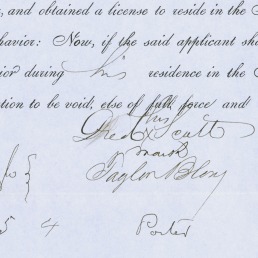 , and obtained a license to reside in the
behavior: Now, if the said applicant sha
ior during his residence in the
tion to be void, else of full force and
his
Dred X Scott
mark
Taylor Blow
5 4 Porter